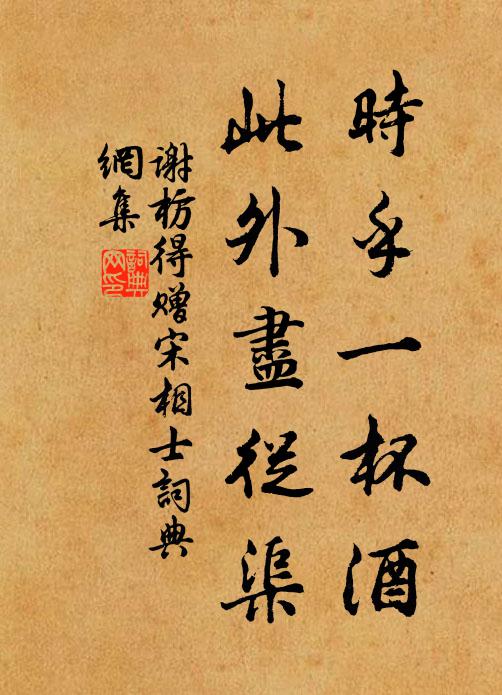 時乎一杯酒
此外盡從渠
谢枋得赠宋相士詞典
網集
詞典
网印